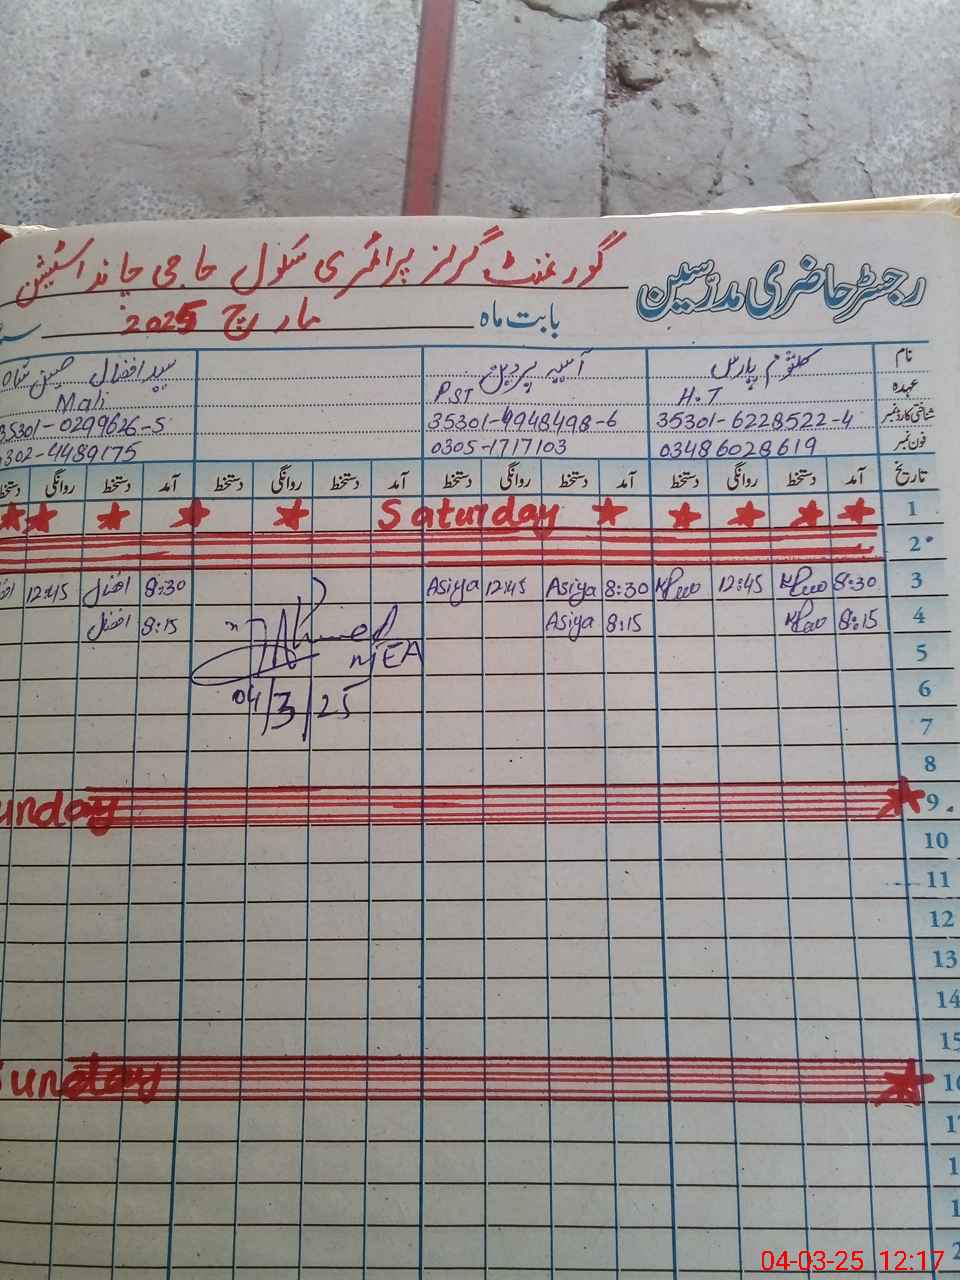 رجسٹر حاضری مدرسین
گورنمنٹ گرلز پرائمری سکول حاجی چاند اسٹیشن
بابت ماہ مارچ 2025
نام کلثوم پارس آسیہ پروین سید افضال حسین شاہ
عہدہ H.T PST Mali
شناختی کارڈ نمبر 35301-6228522-4 35301-4948498-6 35301-0299626-5
فون نمبر 03486028619 0305-1717103 0302-4489175
تاریخ آمد دستخط روانگی دستخط آمد دستخط روانگی دستخط آمد دستخط روانگی دستخط آمد دستخط روانگی دستخط
1 Saturday
2
3 8:30 12:45 8:30 Asiya 12:45 Asiya 8:30 افضل 12:45
4 8:15 8:15 Asiya 8:15 افضل
Ahmed
MEA
04/3/25
5
6
7
8
9 unday
10
11
12
13
14
15
16 Sunday
17
04-03-25 12:17